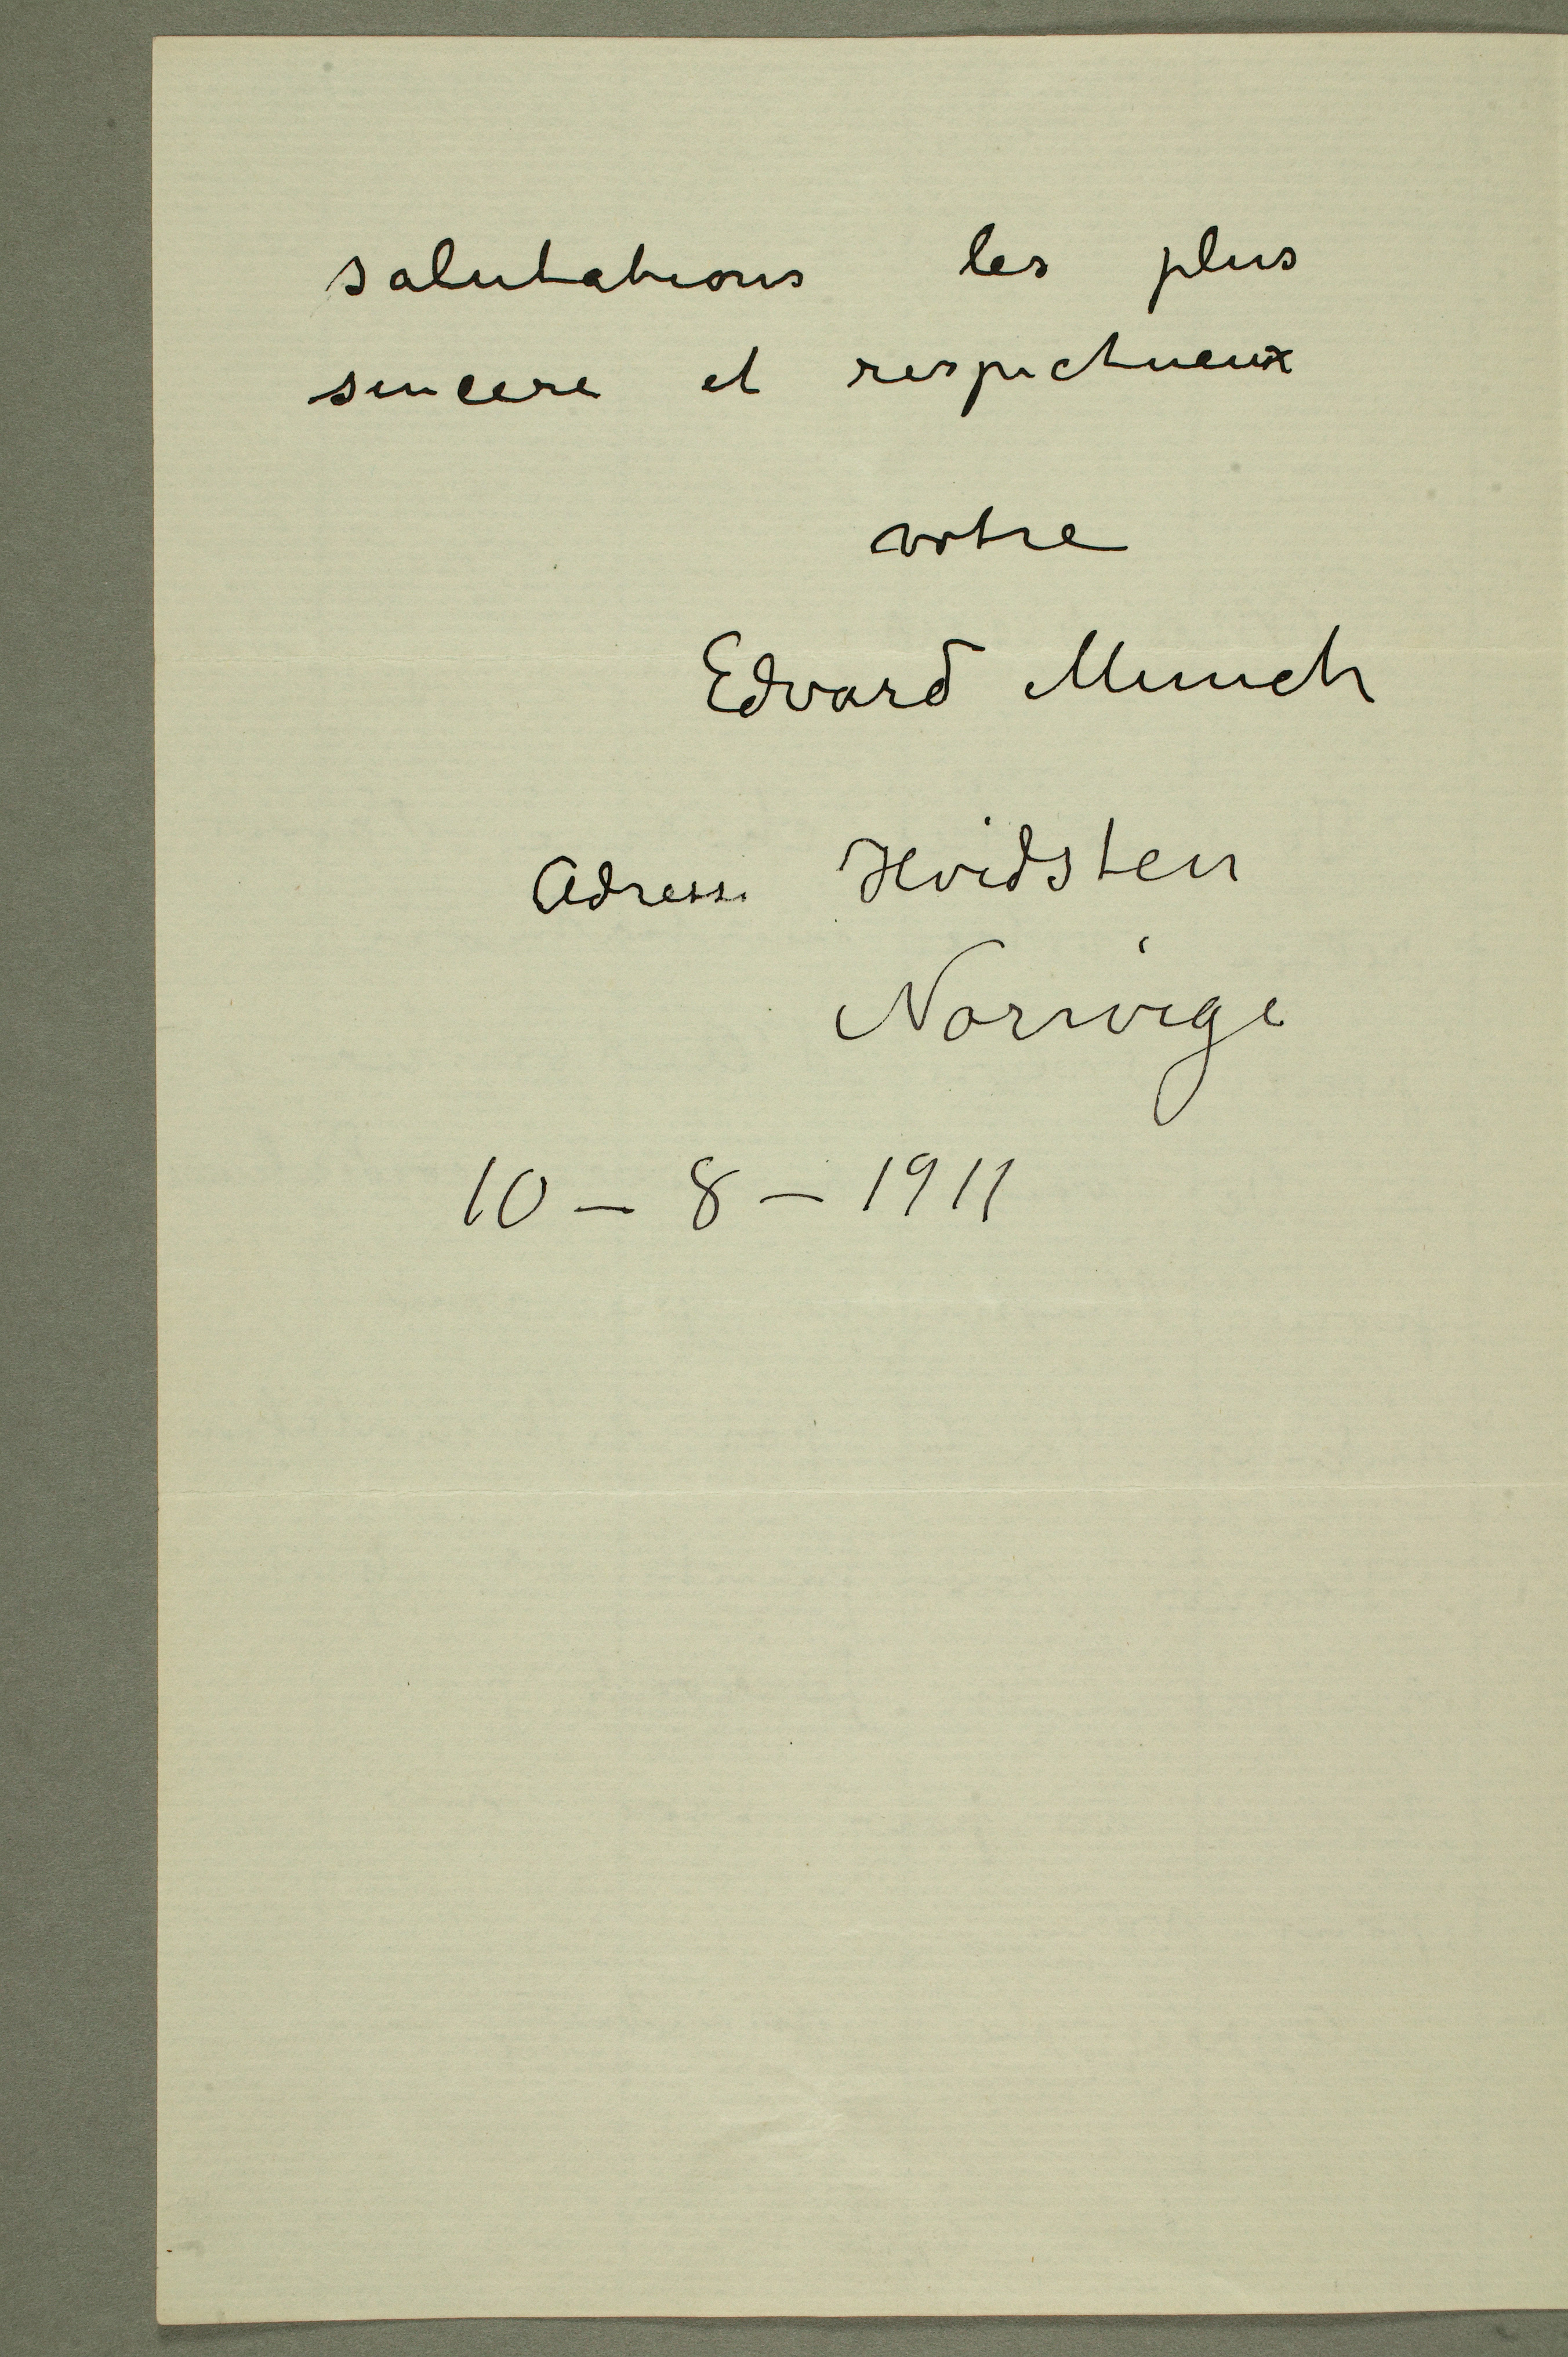 salutations les plus
sincere et respectueux
votre
Edvard Munch
Adresse Hvidsten
Norvège
10 – 8 – 1911